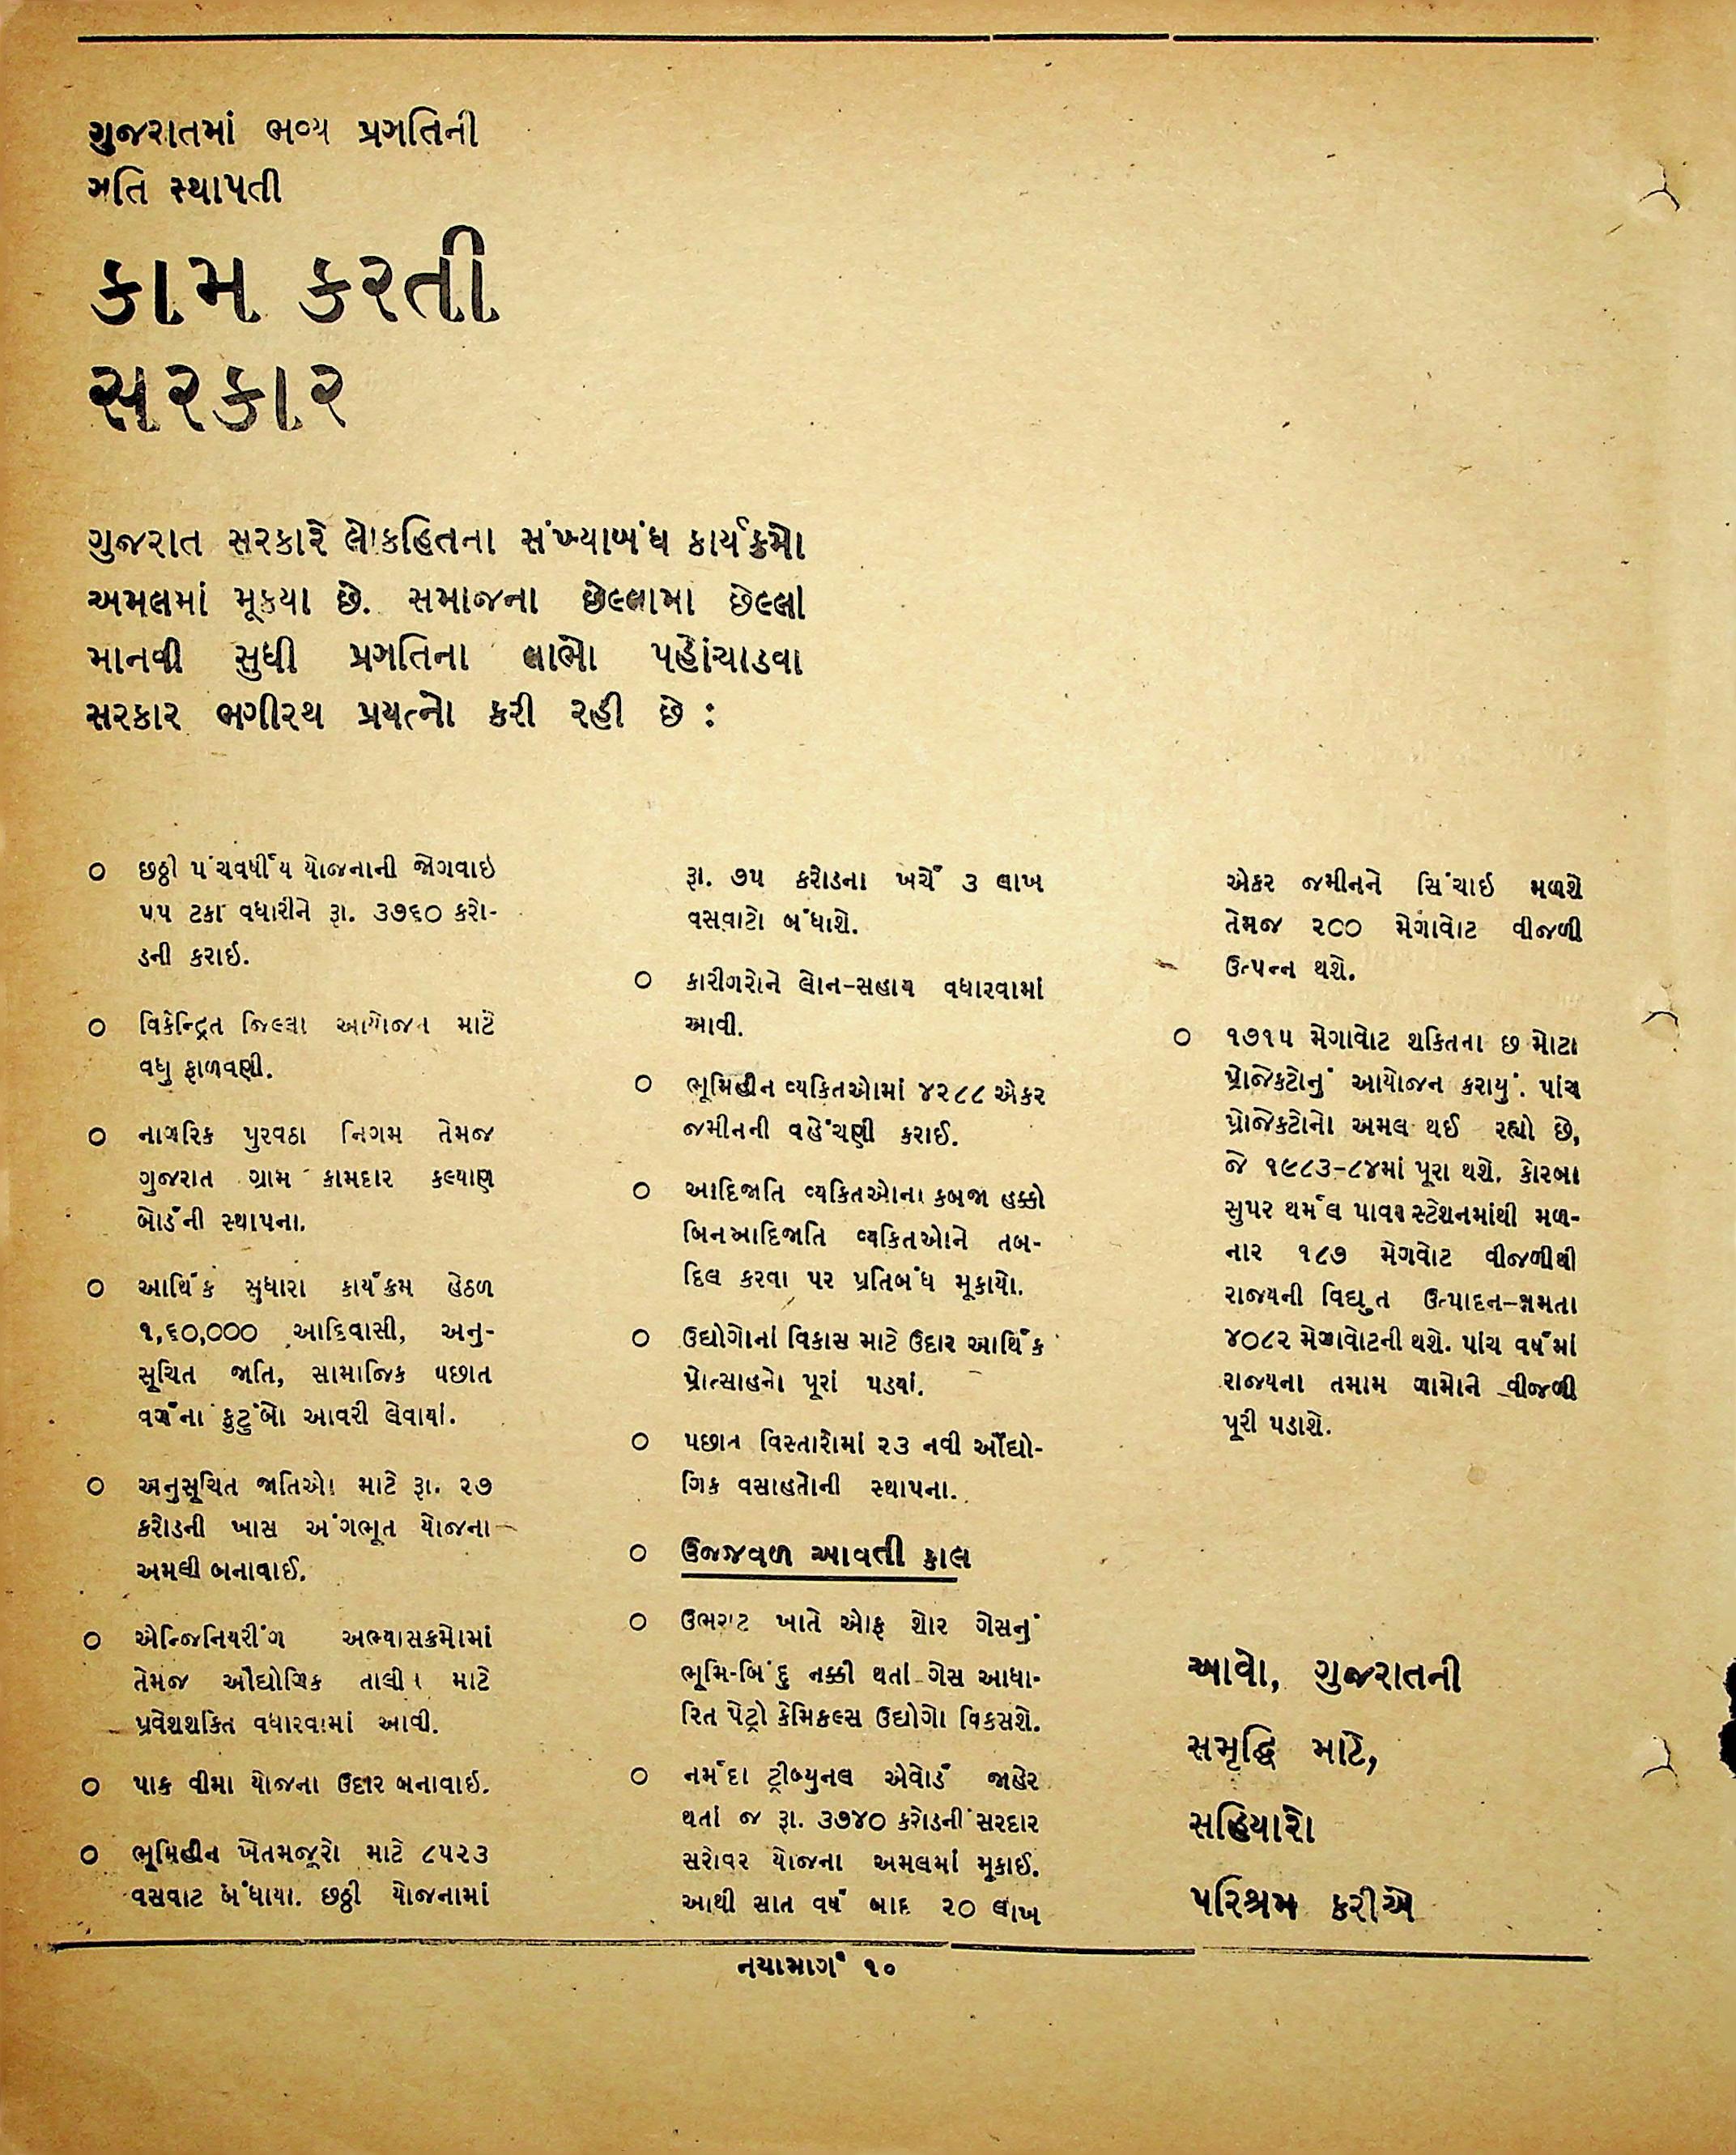 ગુજરાતમાં ભવ્ય પ્રગતિની
ગતિ સ્થાપતી
કામ કરતી
સરકાર
ગુજરાત સરકારે લોકહિતના સંખ્યાબંધ કાર્યક્રમો
અમલમાં મૂકયા છે. સમાજના છેલ્લામા છેલ્લા
માનવી સુધી પ્રગતિના લાભો પહોંચાડવા
સરકાર ભગીરથ પ્રયત્નો કરી રહી છે :
○ છઠ્ઠી પંચવર્ષીય યોજનાની જોગવાઇ
૫૫ ટકા વધારીને રૂા. ૩૭૬૦ કરો-
ડની કરાઇ.
○ વિકેન્દ્રિત જિલ્લા આયોજન માટે
વધુ ફાળવણી.
○ નાગરિક પુરવઠા નિગમ તેમજ
ગુજરાત ગ્રામ કામદાર કલ્યાણ
બોર્ડની સ્થાપના.
○ આર્થિક સુધારા કાર્યક્રમ હેઠળ
૧,૬૦,૦૦૦ આદિવાસી, અનુ-
સૂચિત જાતિ, સામાજિક પછાત
વર્ગના કુટુંબો આવરી લેવાયાં.
○ અનુસૂચિત જાતિઓ માટે રૂા. ૨૭
કરોડની ખાસ અંગભૂત યોજના
અમલી બનાવાઈ.
○ એન્જિનિયરીંગ અભ્યાસક્રમોમાં
તેમજ ઔદ્યોગિક તાલીમ માટે
પ્રવેશશક્તિ વધારવામાં આવી.
○ પાક વીમા યોજના ઉદાર બનાવાઇ.
○ ભૂમિહીન ખેતમજૂરો માટે ૮૫૨૩
વસવાટ બંધાયા. છઠ્ઠી યોજનામાં
રૂા. ૭૫ કરોડના ખર્ચે ૩ લાખ
વસવાટો બંધાશે.
○ કારીગરોને લોન-સહાય વધારવામાં
આવી.
○ ભૂમિહીન વ્યકિતઓમાં ૪૨૮૮ એકર
જમીનની વહેંચણી કરાઈ.
○ આદિજાતિ વ્યકિતઓના કબજા હક્કો
બિનઆદિજાતિ વ્યકિતઓને તબ-
દિલ કરવા પર પ્રતિબંધ મૂકાયો.
○ ઉદ્યોગોનાં વિકાસ માટે ઉદાર આર્થિક
પ્રોત્સાહનો પૂરાં પડયાં.
○ પછાત વિસ્તારોમાં ૨૩ નવી ઔદ્યો-
ગિક વસાહતોની સ્થાપના.
○ ઉજજવળ આવતી કાલ
○ ઉભરાટ ખાતે ઓફ શોર ગેસનું
ભૂમિ-બિંદુ નક્કી થતાં ગેસ આધા-
રિત પેટ્રો કેમિકલ્સ ઉદ્યોગો વિકસશે.
○ નર્મદા ટ્રીબ્યુનલ એવોર્ડ જાહેર
થતાં જ રૂા. ૩૭૪૦ કરોડની સરદાર
સરોવર યોજના અમલમાં મૂકાઈ.
આથી સાત વર્ષ બાદ ૨૦ લાખ
એકર જમીનને સિંચાઇ મળશે
તેમજ ૨૦૦ મેગાવોટ વીજળી
ઉત્પન્ન થશે.
○ ૧૭૧૫ મેગાવોટ શકિતના છ મોટા
પ્રોજેકટોનું આયોજન કરાયું. પાંચ
પ્રોજેકટોનો અમલ થઈ રહ્યો છે,
જે ૧૯૮૩-૮૪માં પૂરા થશે. કોરબા
સુપર થર્મલ પાવર સ્ટેશનમાંથી મળ-
નાર ૧૮૭ મેગવોટ વીજળીથી
રાજયની વિદ્યુત ઉત્પાદન-ક્ષમતા
૪૦૮૨ મેગાવોટની થશે. પાંચ વર્ષમાં
રાજયના તમામ ગામોને વીજળી
પૂરી પડાશે.
આવો, ગુજરાતની
સમૃદ્ધિ માટે,
સહિયારો
પરિશ્રમ કરીએ
નયામાર્ગ ૧૦